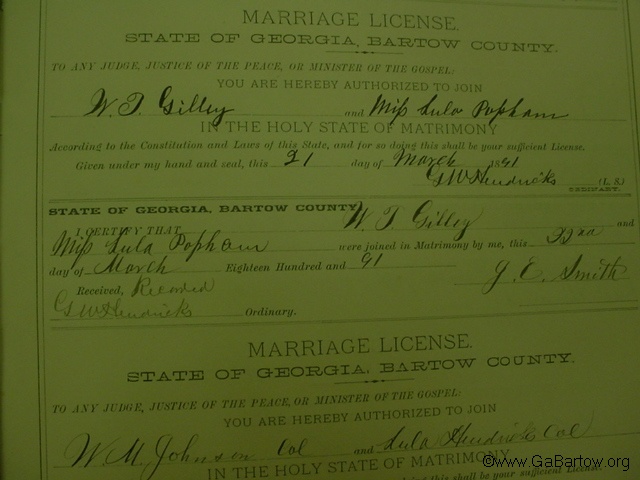 MARRIAGE LICENSE.
STATE OF GEORGIA, BARTOW COUNTY.
TO ANY JUDGE, JUSTICE OF THE PEACE, OR MINISTER OF THE GOSPEL:
YOU ARE HEREBY AUTHORIZED TO JOIN
W. T. Gilley and Miss Lula Popham
IN THE HOLY STATE OF MATRIMONY
According to the Constitution and Laws of this State, and for so doing this shall be your sufficient License.
Given under my hand and seal, this 21 day of March 1891
G W Hendricks (L. S.)
ORDINARY.
STATE OF GEORGIA, BARTOW COUNTY
I CERTIFY THAT W. T. Gilley and
Miss Lula Popham were joined in Matrimony by me, this 22nd
day of March Eighteen Hundred and 91
J. E. Smith
Received, Recorded
G W Hendricks Ordinary.
MARRIAGE LICENSE.
STATE OF GEORGIA, BARTOW COUNTY.
TO ANY JUDGE, JUSTICE OF THE PEACE, OR MINISTER OF THE GOSPEL:
YOU ARE HEREBY AUTHORIZED TO JOIN
W. M. Johnson Col and Lula Hendricks Col
IN THE HOLY STATE OF MATRIMONY
©www.GaBartow.org